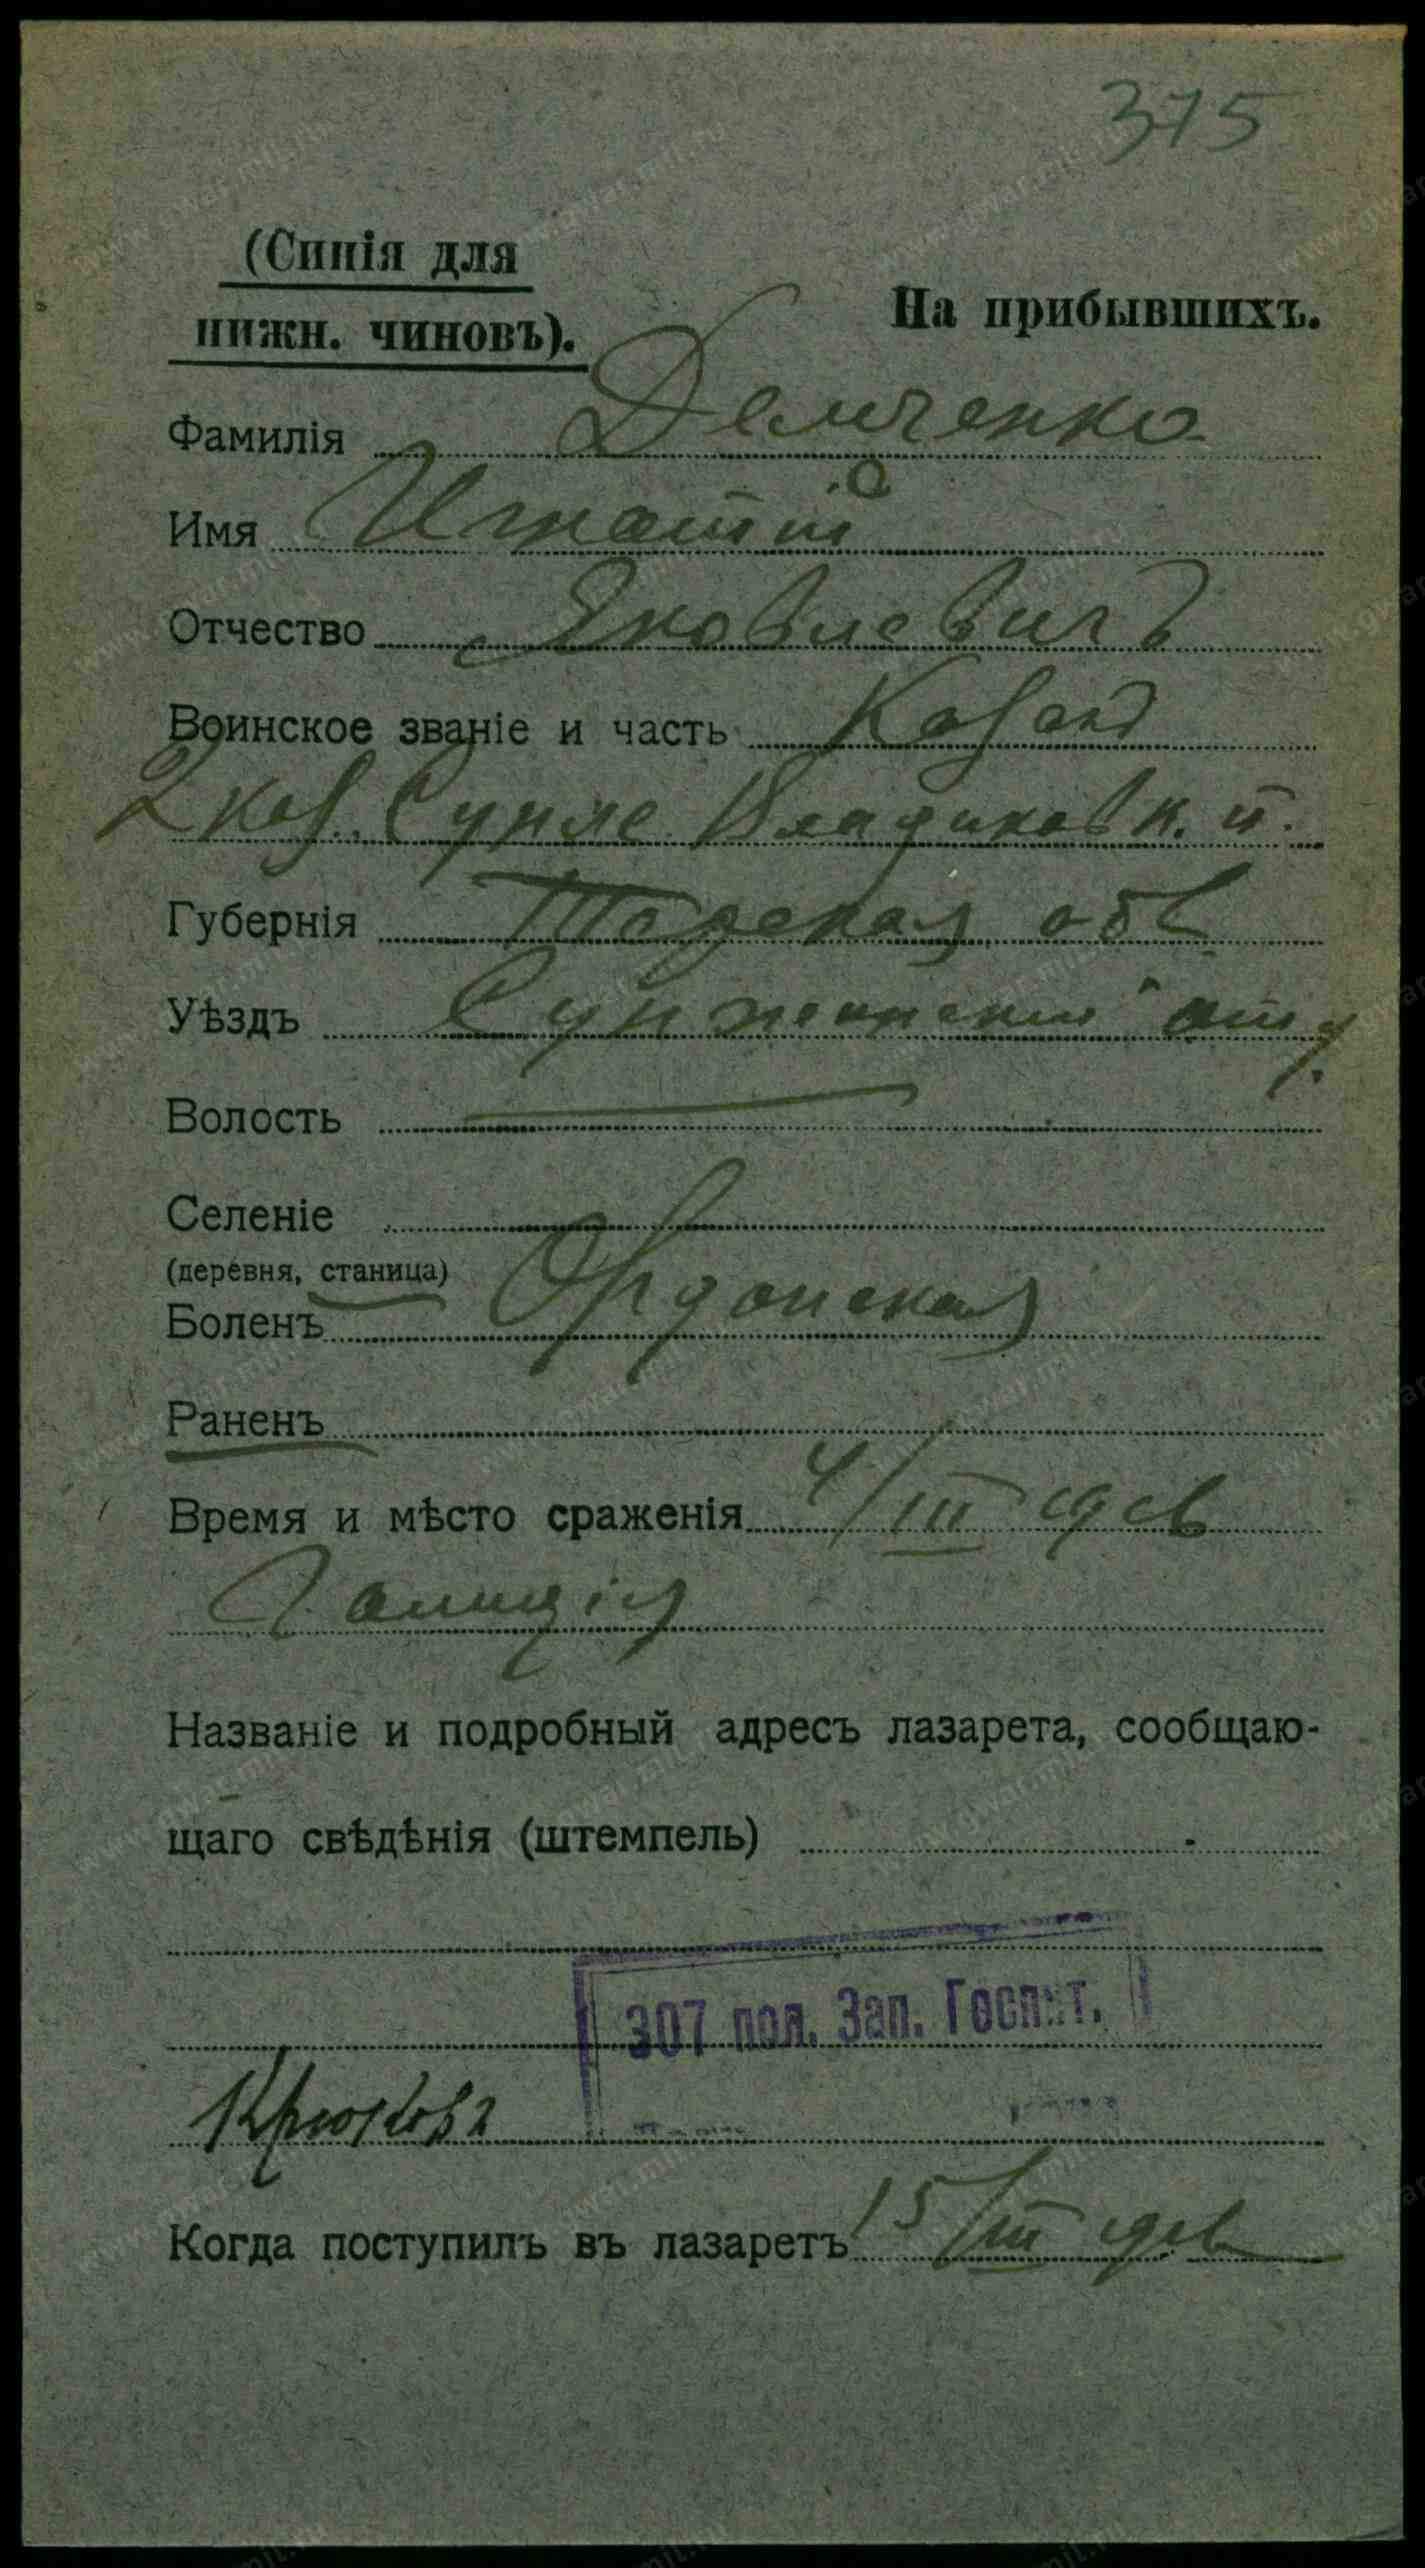 375
(Синія для
нижн. чиновъ).
На прибывшихъ.
Фамилія Демченко
Имя Игнатій
Отчество Яковлевичъ
Воинское званіе и часть Козакъ
2 Кав. Сунже Владикавк. п.
Губернія Терская обл
Уѣздъ Сунженскій отд.
Волость
Селеніе
(деревня, станица)
Ордонская
Боленъ
Раненъ
Время и мѣсто сраженія 4/III
Галиція
Названіе и подробный адресъ лазарета, сообщаю-
щаго свѣдѣнія (штемпель)
307 пол. Зап. Госпит.
Крюковъ
Когда поступилъ въ лазаретъ 15/III